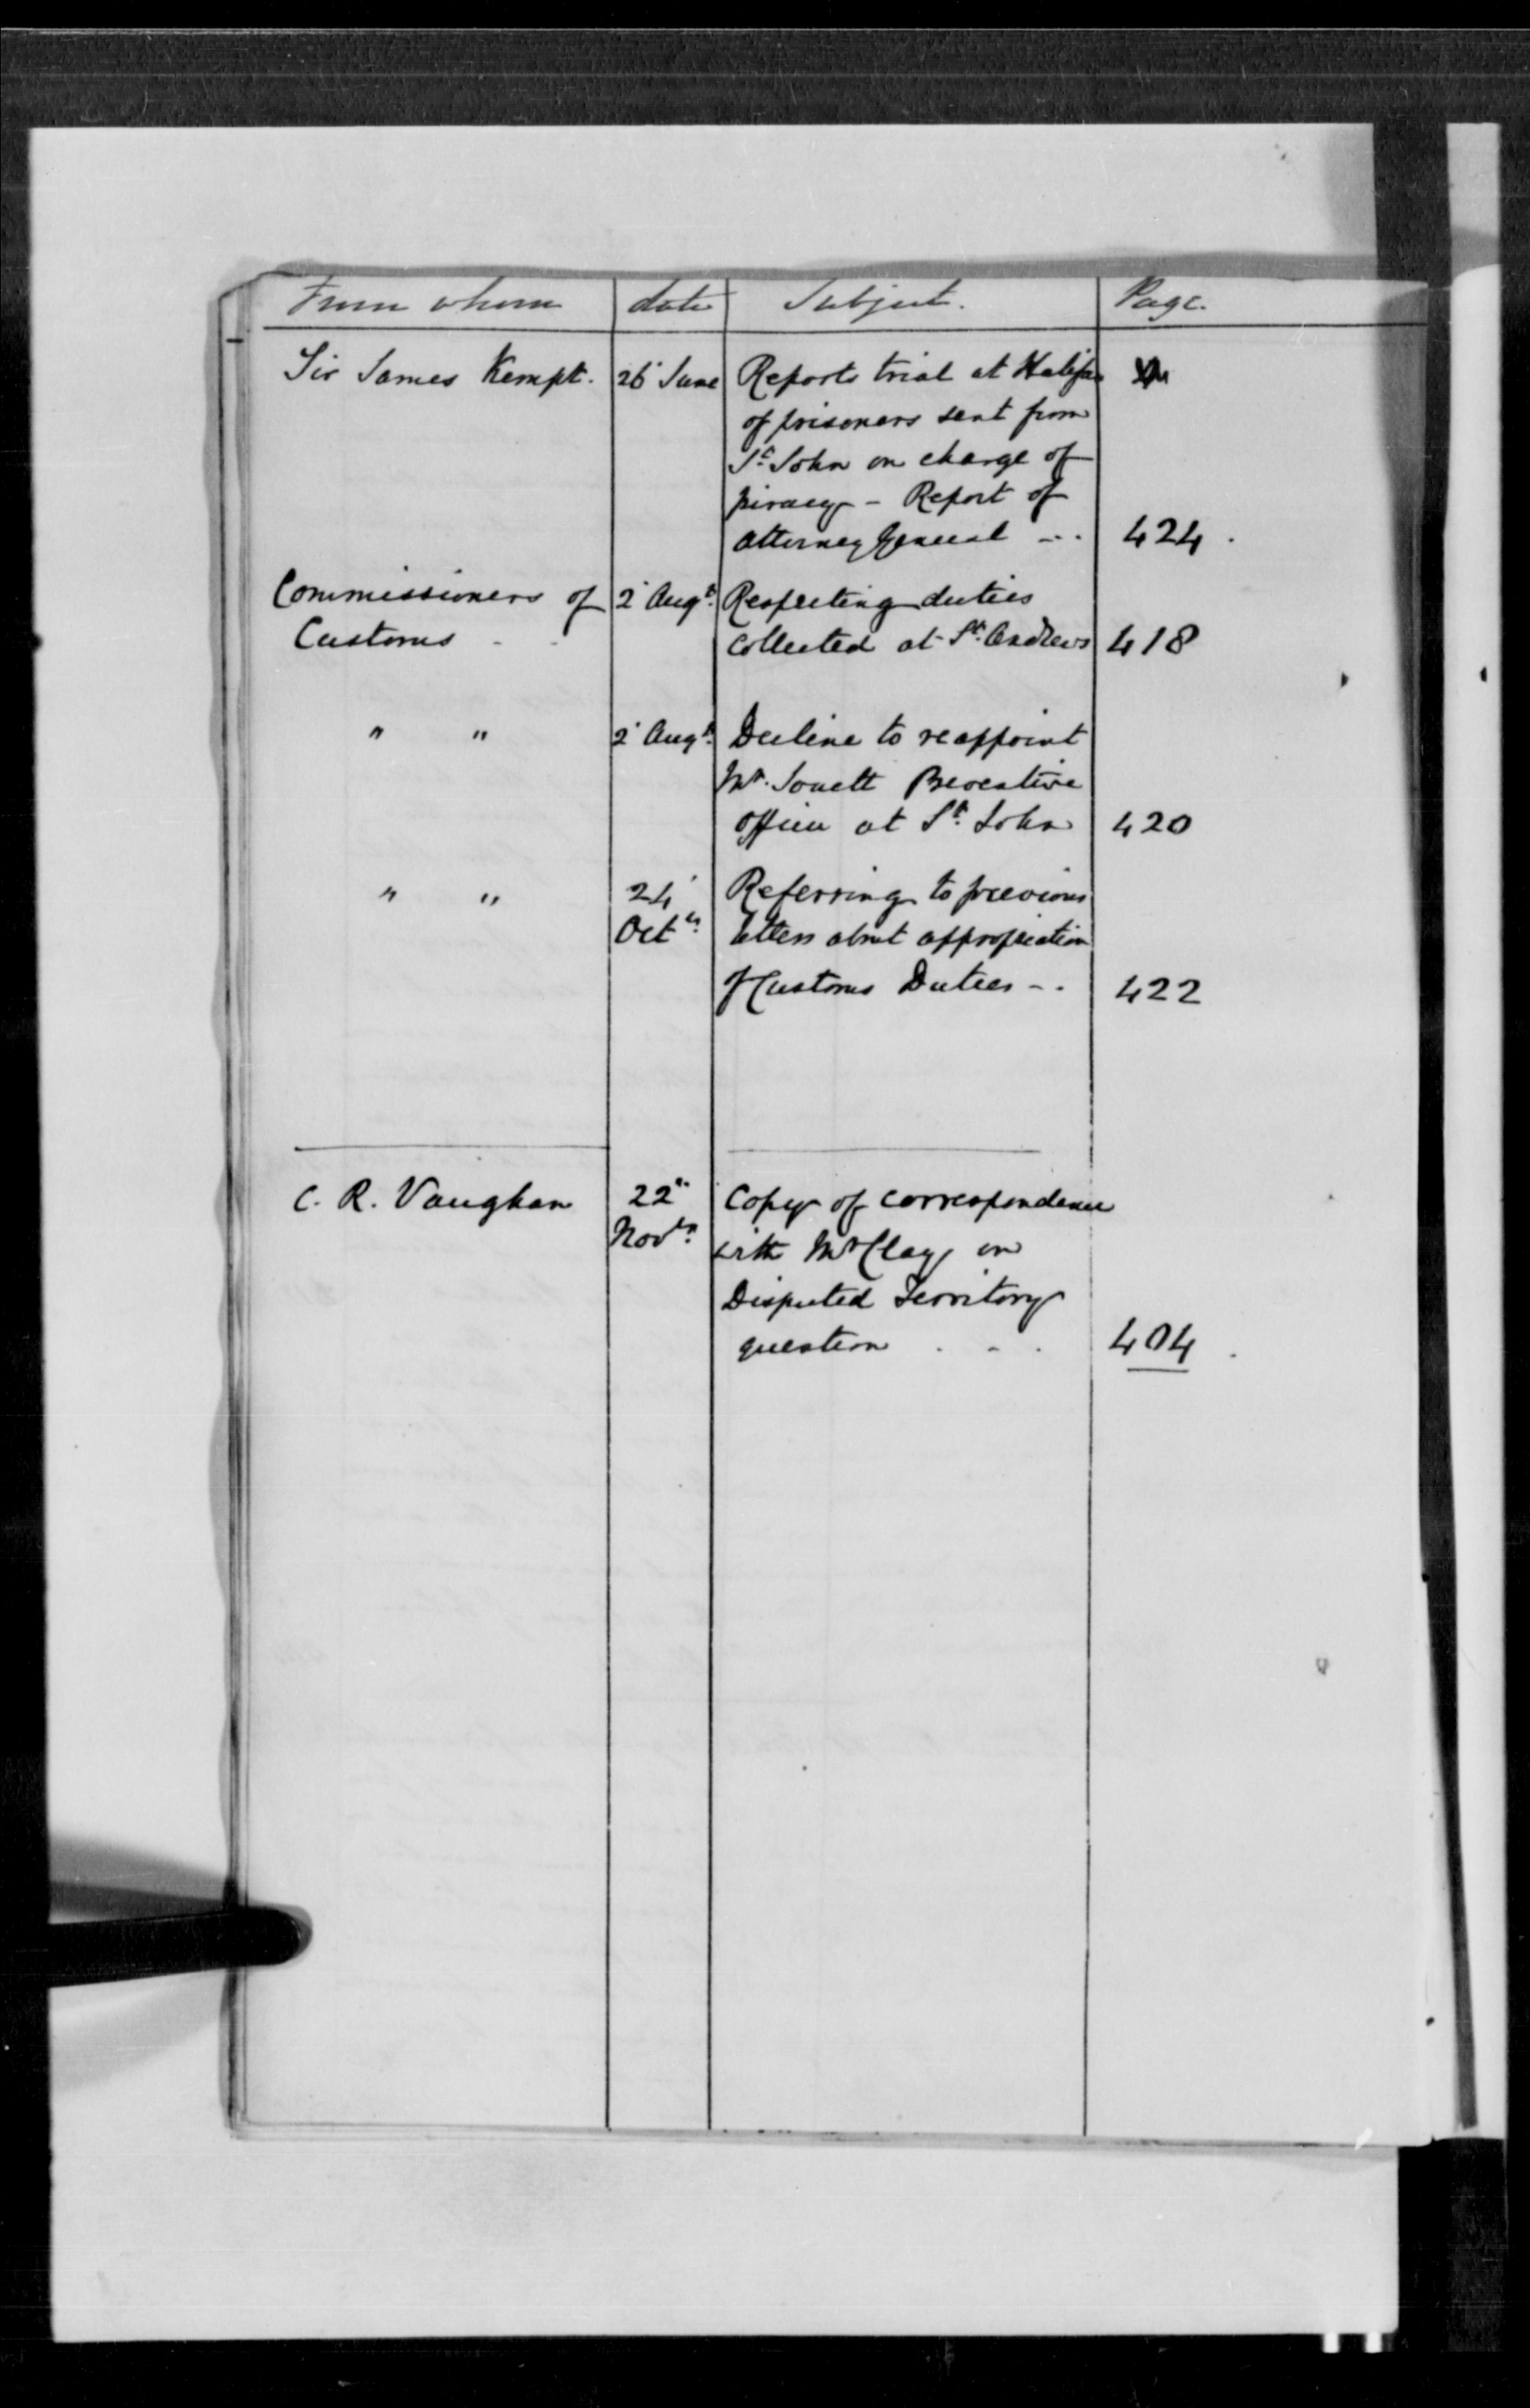 From whom date Subject. Page.
Sir James Kempt. 26 June Reports trial at Halifax
of prisoners sent from
St. John on charge of
piracy - Report of
Attorney General - . . 424 .
Commissioners of 2 Augt. Respecting duties
Customs - . collected at St. Andrews 418
" " 2 Augt. Decline to reappoint
Mr. Preventive
Officer at St. John 420
" " 24 Referring to previous
Octr. letters about appropriation
of Customs Duties - . 422
C. R. Vaughan 22" Copy of correspondence
Novr. with Mr Clay on
Disputed Territory
question . - . 404 .